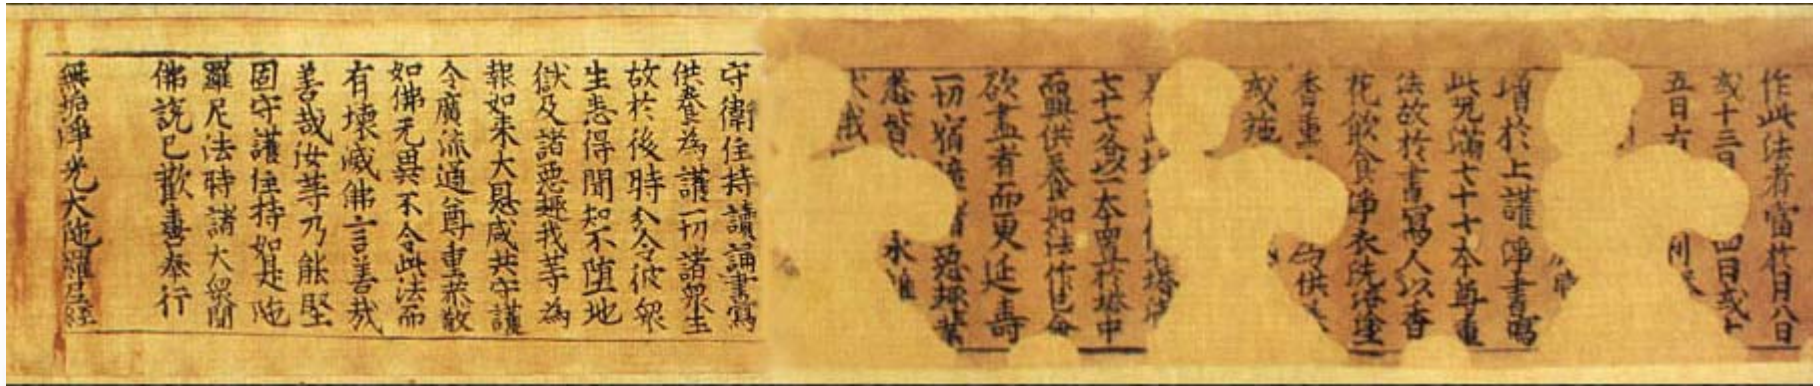 作此法者當於月八日
或十三日 四日或十
五日右
壇於上護淨書寫
此咒滿七十七本尊重
法故於書寫人以香
花飲食淨衣洗浴塗
香熏 供
或施
塔
七十七各以一本置於塔中
而興供養如法作已命
欲盡者而更延壽
一切宿障 惡趣業
悉皆 永離
守衛住持讀誦書寫
供養為護一切諸眾生
故於後時分令彼眾
生悉得聞知不墮地
獄及諸惡趣我等為
報如来大恩咸共守護
令廣流通尊重恭敬
如佛无異不令此法而
有壞滅佛言善哉
善哉汝等乃能堅
固守護住持如是陁
羅尼法時諸大眾聞
佛說已歡喜奉行
無垢淨光大陁羅尼經